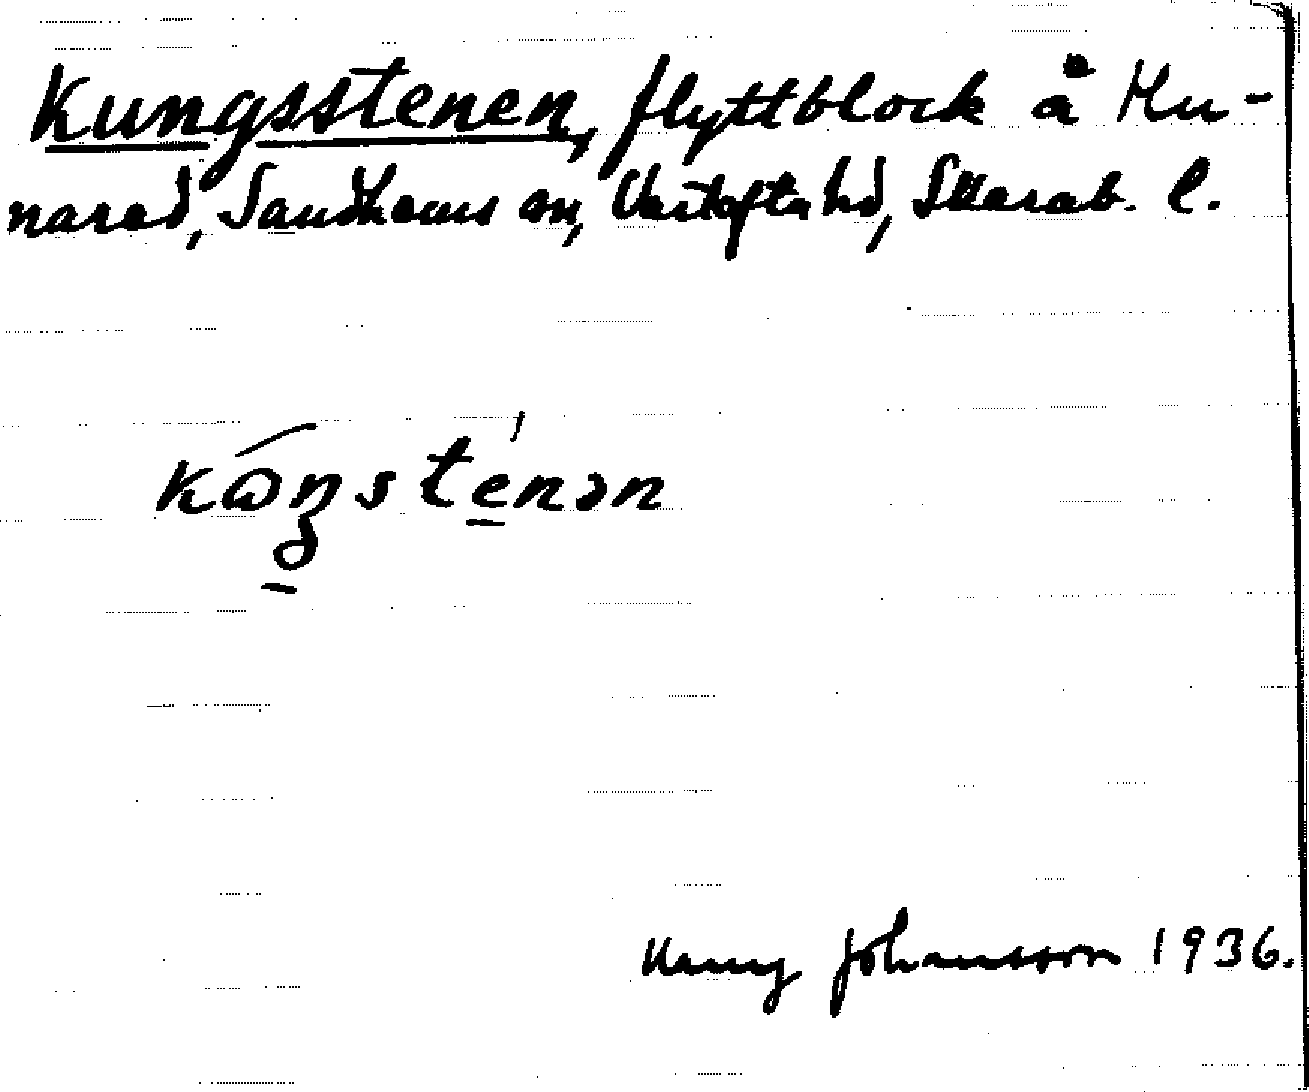 Kungsstenen, flyttblock å Ku-
narad, Sandhems sn, Vartofta hd, Skarab. l.
kɷŋstenən
Harry Johansson 1936.